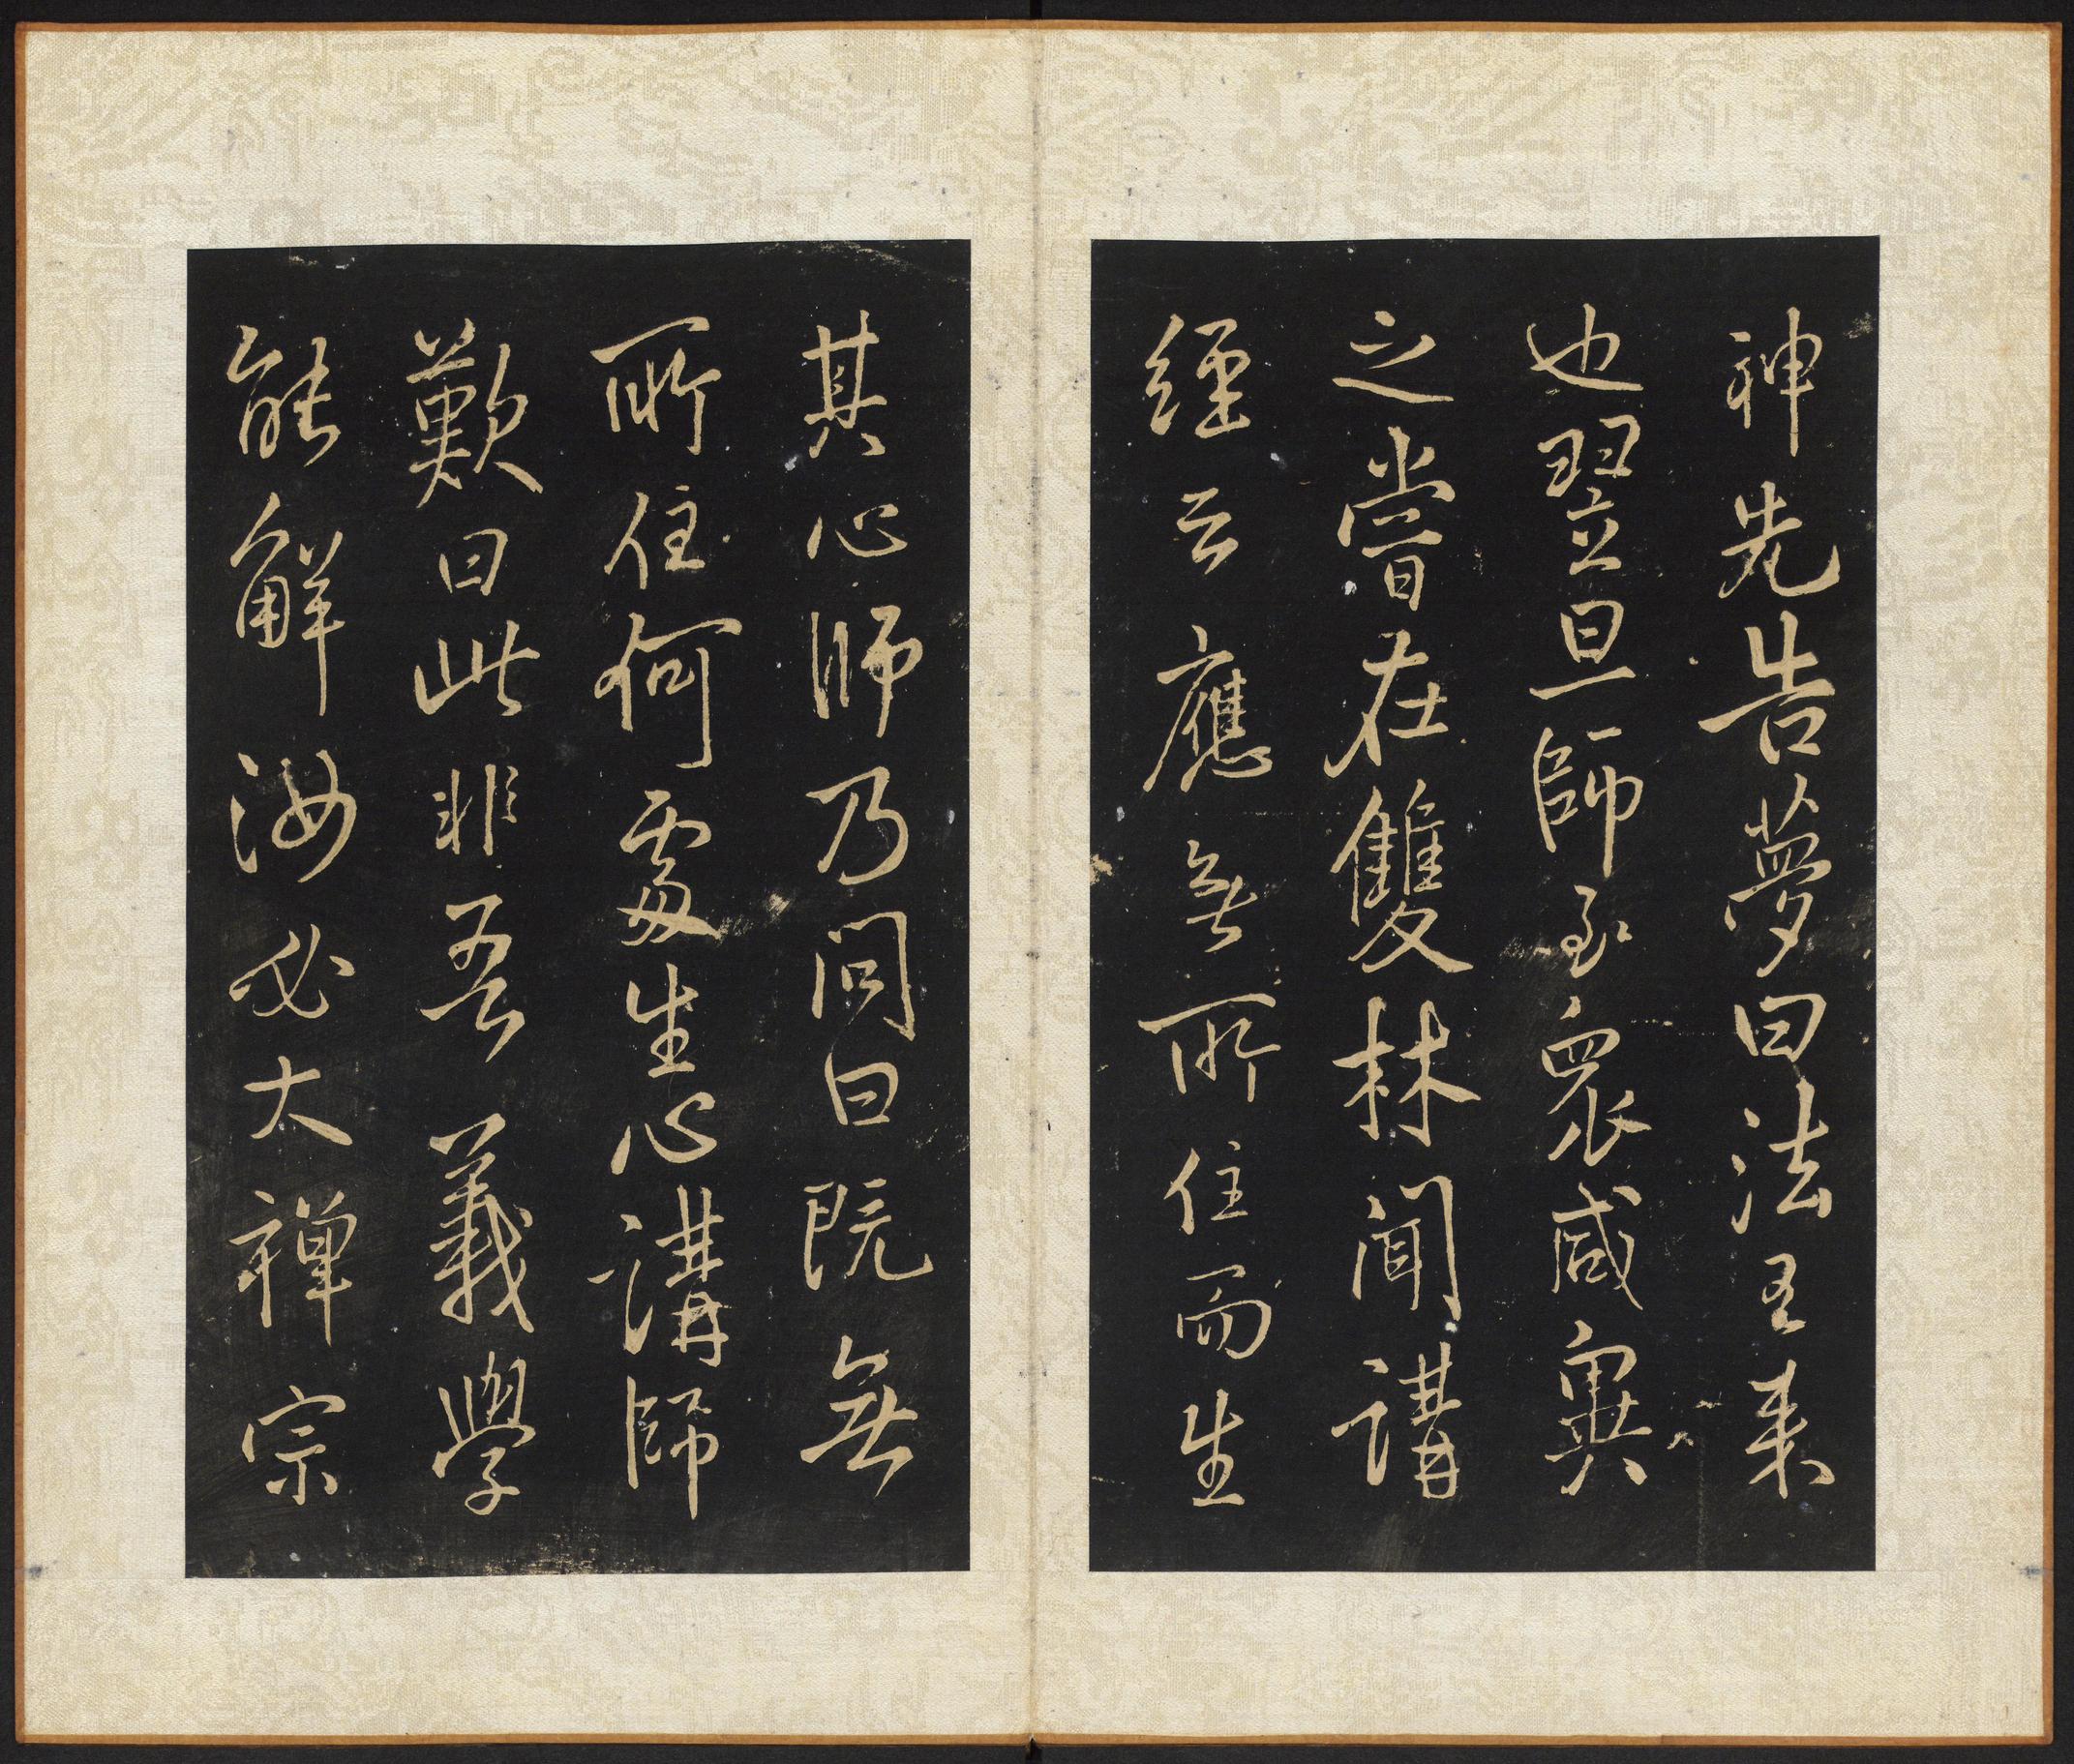 神先告夢曰法王来
也翌旦師至衆咸異
之嘗在雙林聞講
經云應無所住而生
其心師乃問曰既無
所住何處生心講師
歎曰此非吾義學
能解汝必大禪宗